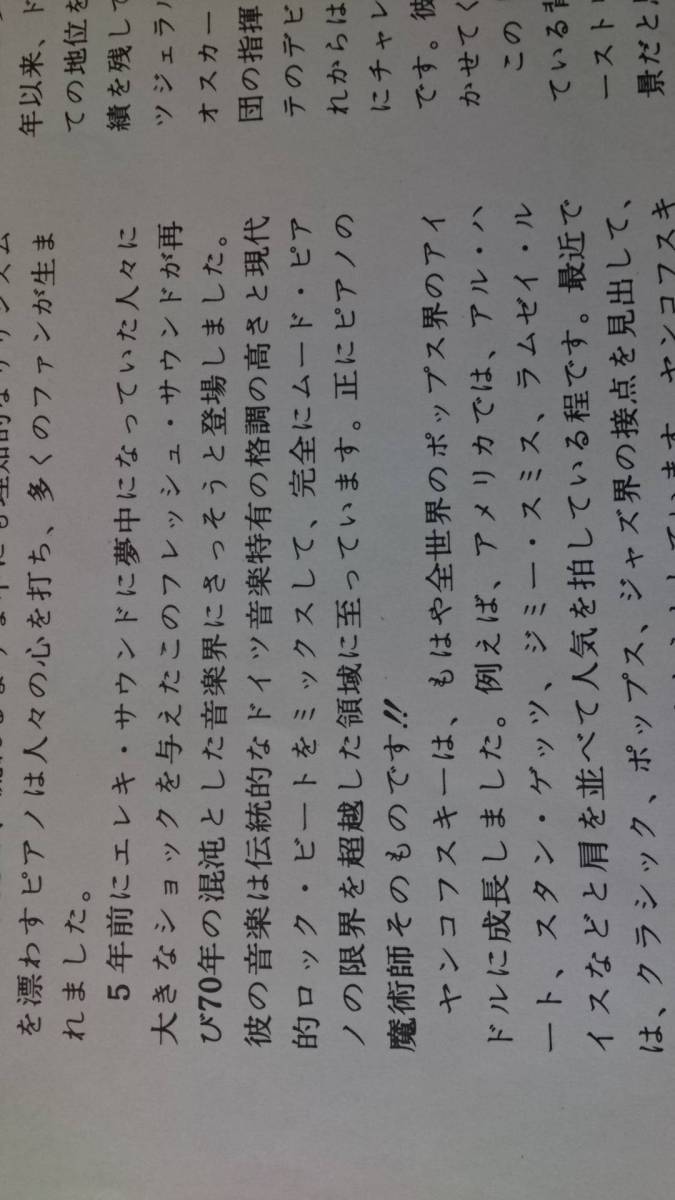 を漂わすピアノは人々の心を打ち、多くのファンが生ま
れました。
5年前にエレキ・サウンドに夢中になっていた人々に
大きなショックを与えたこのフレッシュ・サウンドが再
び70年の混沌とした音楽界にさっそうと登場しました。
彼の音楽は伝統的なドイツ音楽特有の格調の高さと現代
的ロック・ビートをミックスして、完全にムード・ピア
ノの限界を超越した領域に至っています。正にピアノの
魔術師そのものです!!
ヤンコフスキーは、もはや全世界のポップス界のアイ
ドルに成長しました。例えば、アメリカでは、アル・ハ
ート、スタン・ゲッツ、ジミー・スミス、ラムゼイ・ル
イスなどと肩を並べて人気を拍している程です。最近で
は、クラシック、ポップス、ジャズ界の接点を見出して、
ています。ヤンコフスキ
年以来、ド
ての地位を
績を残して
ツジェラ
オスカー
団の指揮
テのデビ
れからは
にチャレ
です。彼
かせてく
この
ている
ースト
景だと